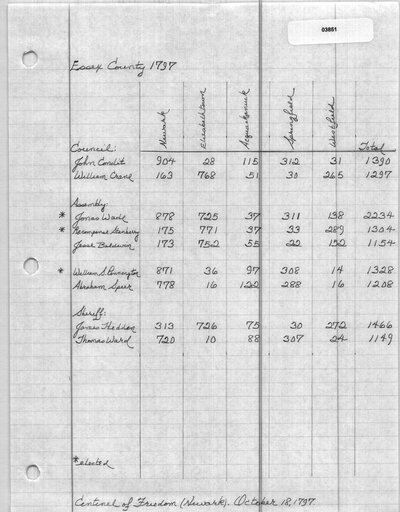 03851
Essex County 1797
Newark Elizabethtown Acquackanuck Springfield Westfield
Council: Total
John Condit 904 28 115 312 31 1390
William Crane 163 768 51 30 265 1297
Assembly:
* Jonas Wade 878 725 37 311 138 2234
* Recompense Stanbery 175 771 37 33 289 1304
Jesse Baldwin 173 752 55 22 152 1154
* William S. Pennington 871 36 97 308 14 1328
Abraham Speer 778 16 122 288 16 1208
Sheriff:
James Hedden 313 726 75 30 272 1466
Thomas Ward 720 10 88 307 24 1149
*elected
Centinel of Freedom (Newark). October 18, 1797.